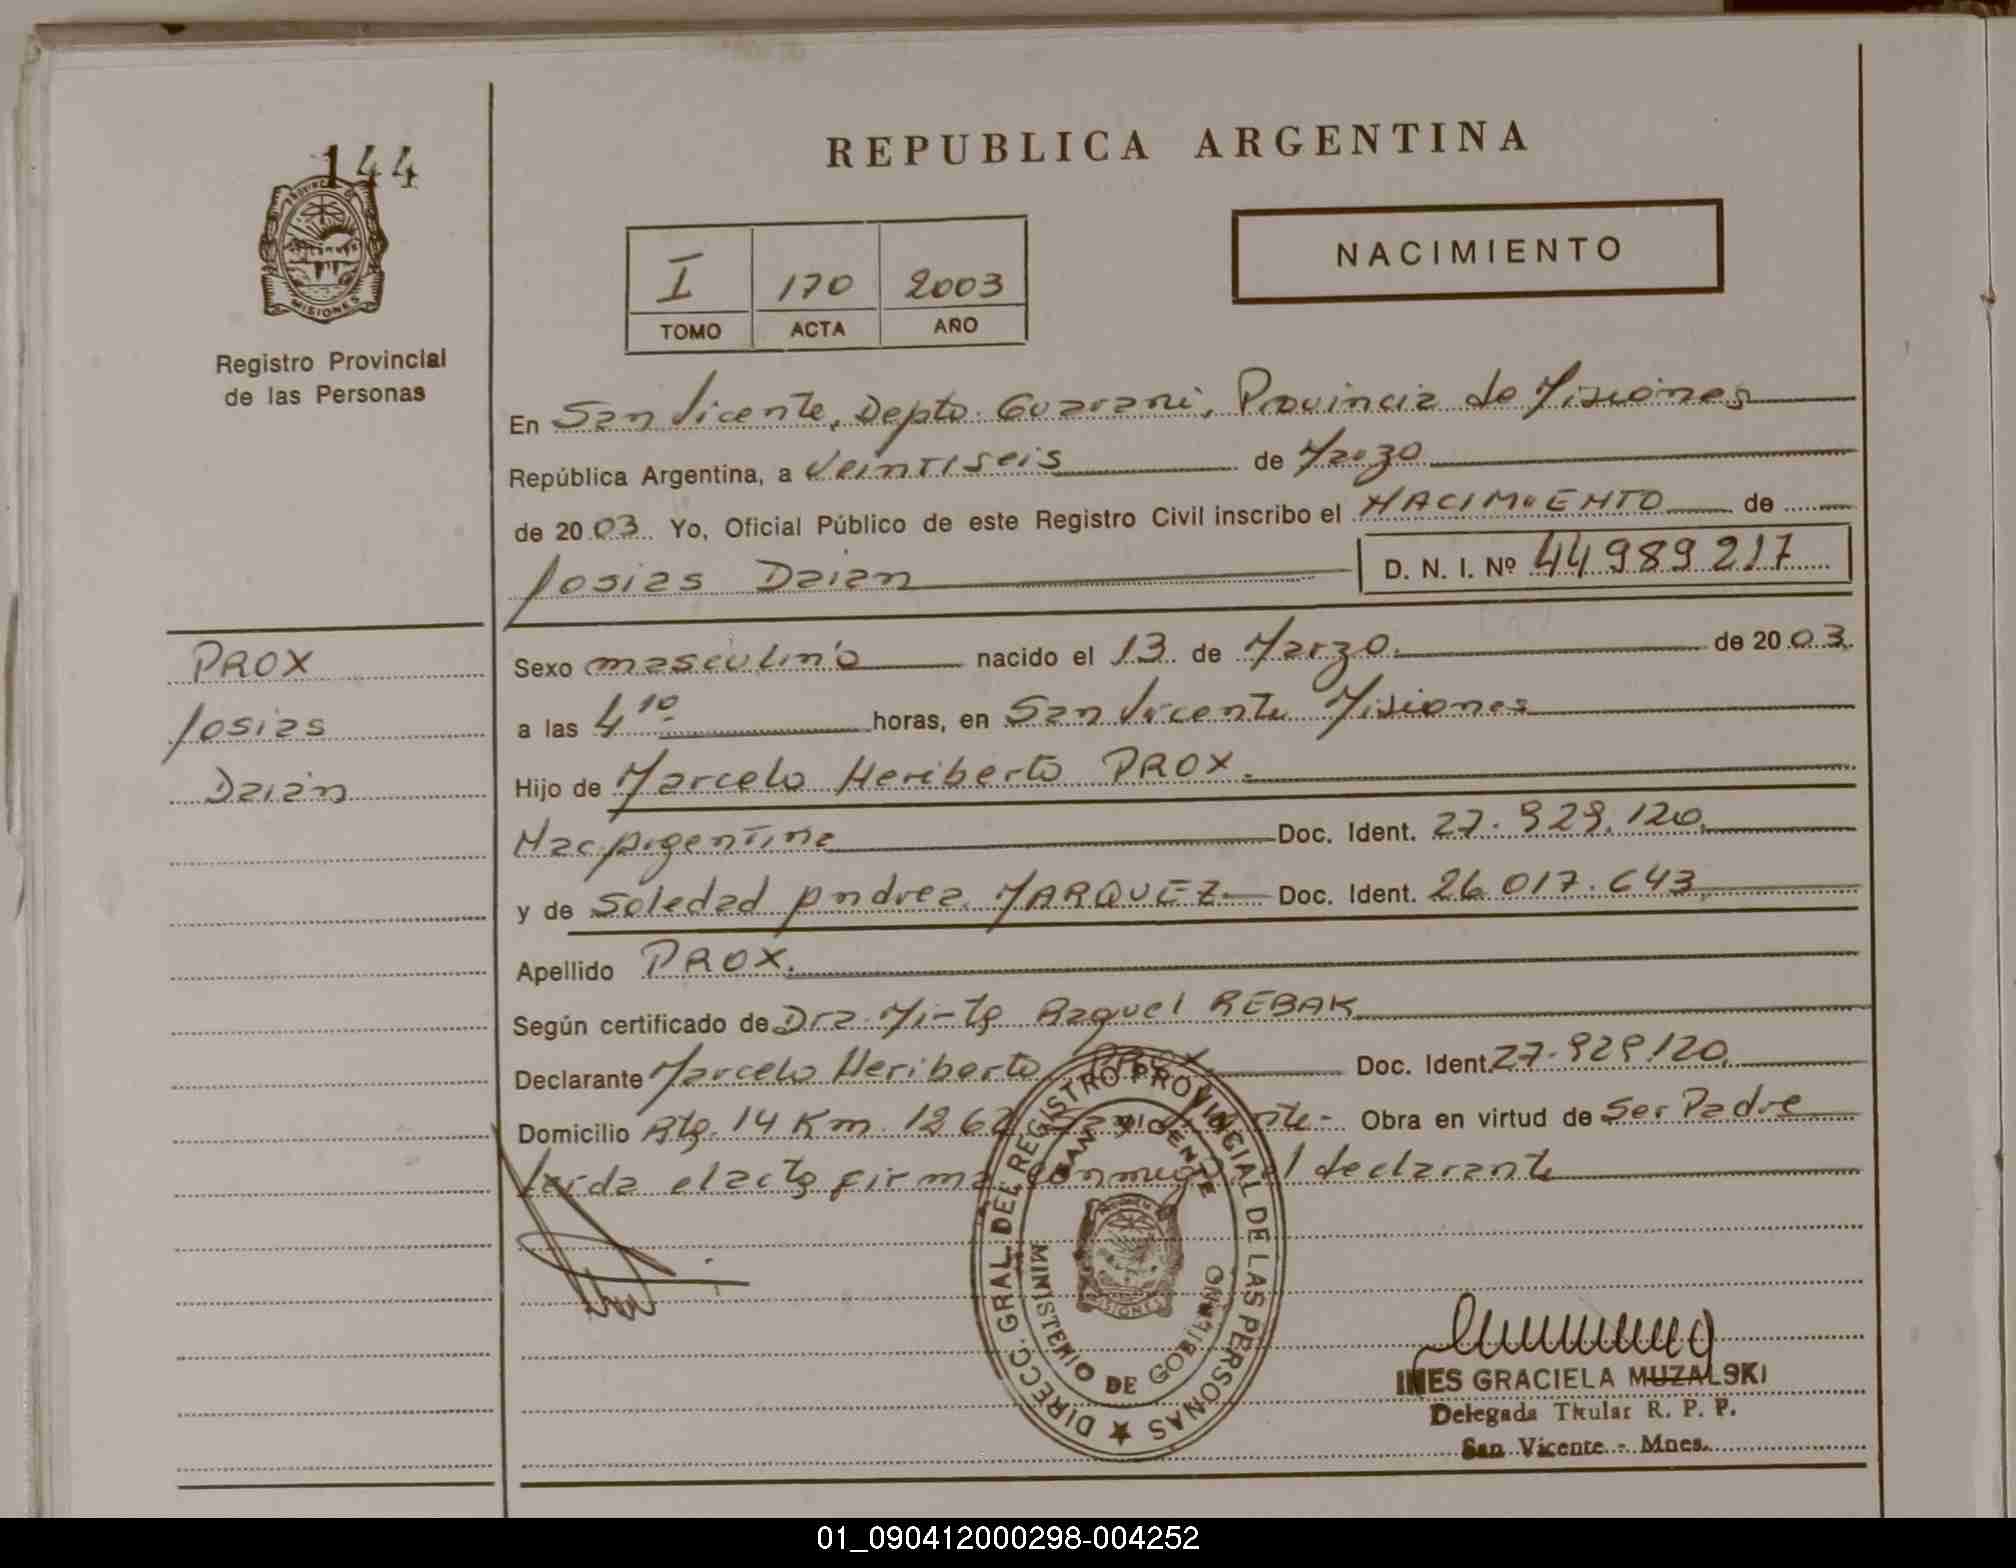 144
PROVINCIA DE
MISIONES
Registro Provincial
de las Personas
REPUBLICA ARGENTINA
I 170 2003
TOMO ACTA AÑO
NACIMIENTO
En San Vicente, Depto. Guarani, Provincia de Misiones
República Argentina, a veintiseis de Marzo
de 2003. Yo, Oficial Público de este Registro Civil inscribo el NACIMIENTO de
Josias Daian D. N. I. Nº 44989217
PROX
Josias
Daian
Sexo masculino nacido el 13 de Marzo. de 2003.
a las 4 10 horas, en San Vicente Misiones
Hijo de Marcelo Heriberto PROX.
Nac Argentina Doc. Ident. 27.929.120.
y de Soledad Andrea MARQUEZ Doc. Ident. 26.017.643.
Apellido PROX.
Según certificado de Dra. Raquel REBAK
Declarante Marcelo Heriberto PROX. Doc. Ident. 27.929.120.
Domicilio Rta. 14 Km. 1262 San Vicente - Obra en virtud de Ser Padre
Leida el acta firma conmigo el declarante
DIRECC. GRAL. DEL REGISTRO PROVINCIAL DE LAS PERSONAS
SAN VICENTE
MISIONES
MINISTERIO DE GOBIERNO
INES GRACIELA MUZALSKI
Delegada Titular R. P. P.
San Vicente - Mnes.
01_090412000298-004252